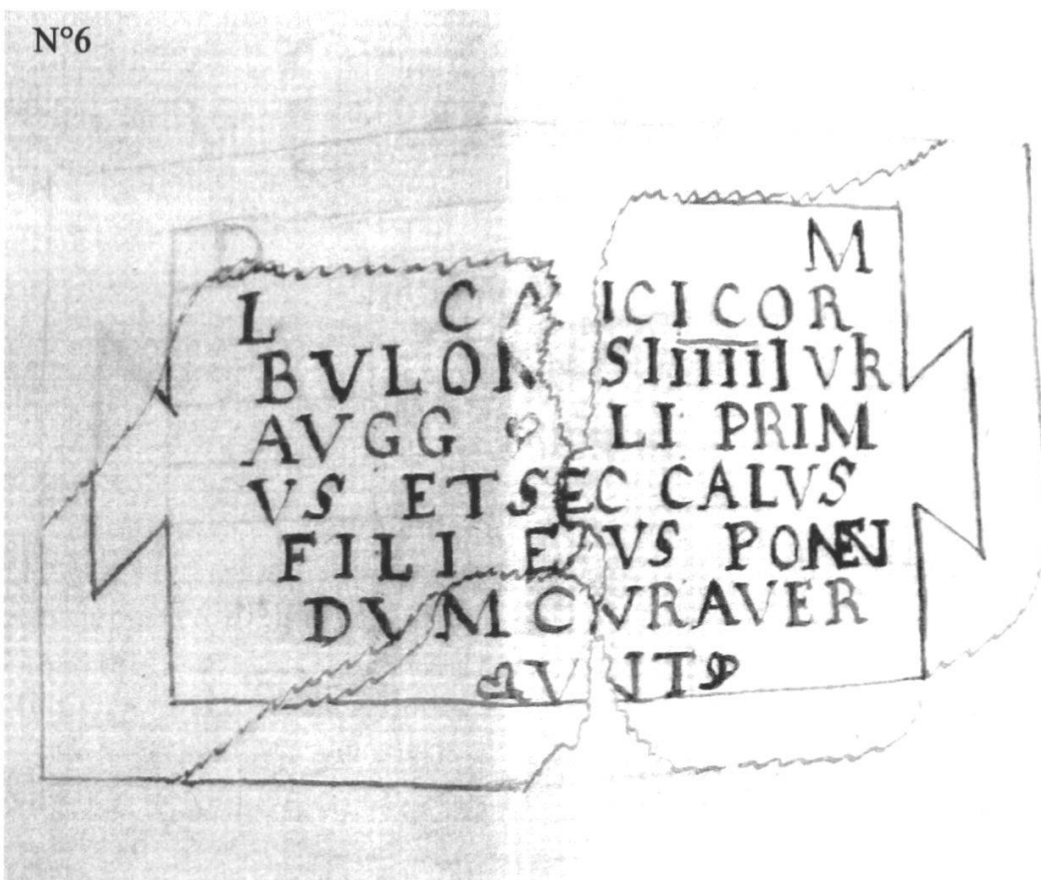 N°6
D M
L CA ICICOR
BVLON SIIIIIIVR
AVGG LI PRIM
VS ET SEC CALVS
FILI E VS PONEN
DVM CVRAVER
VNT